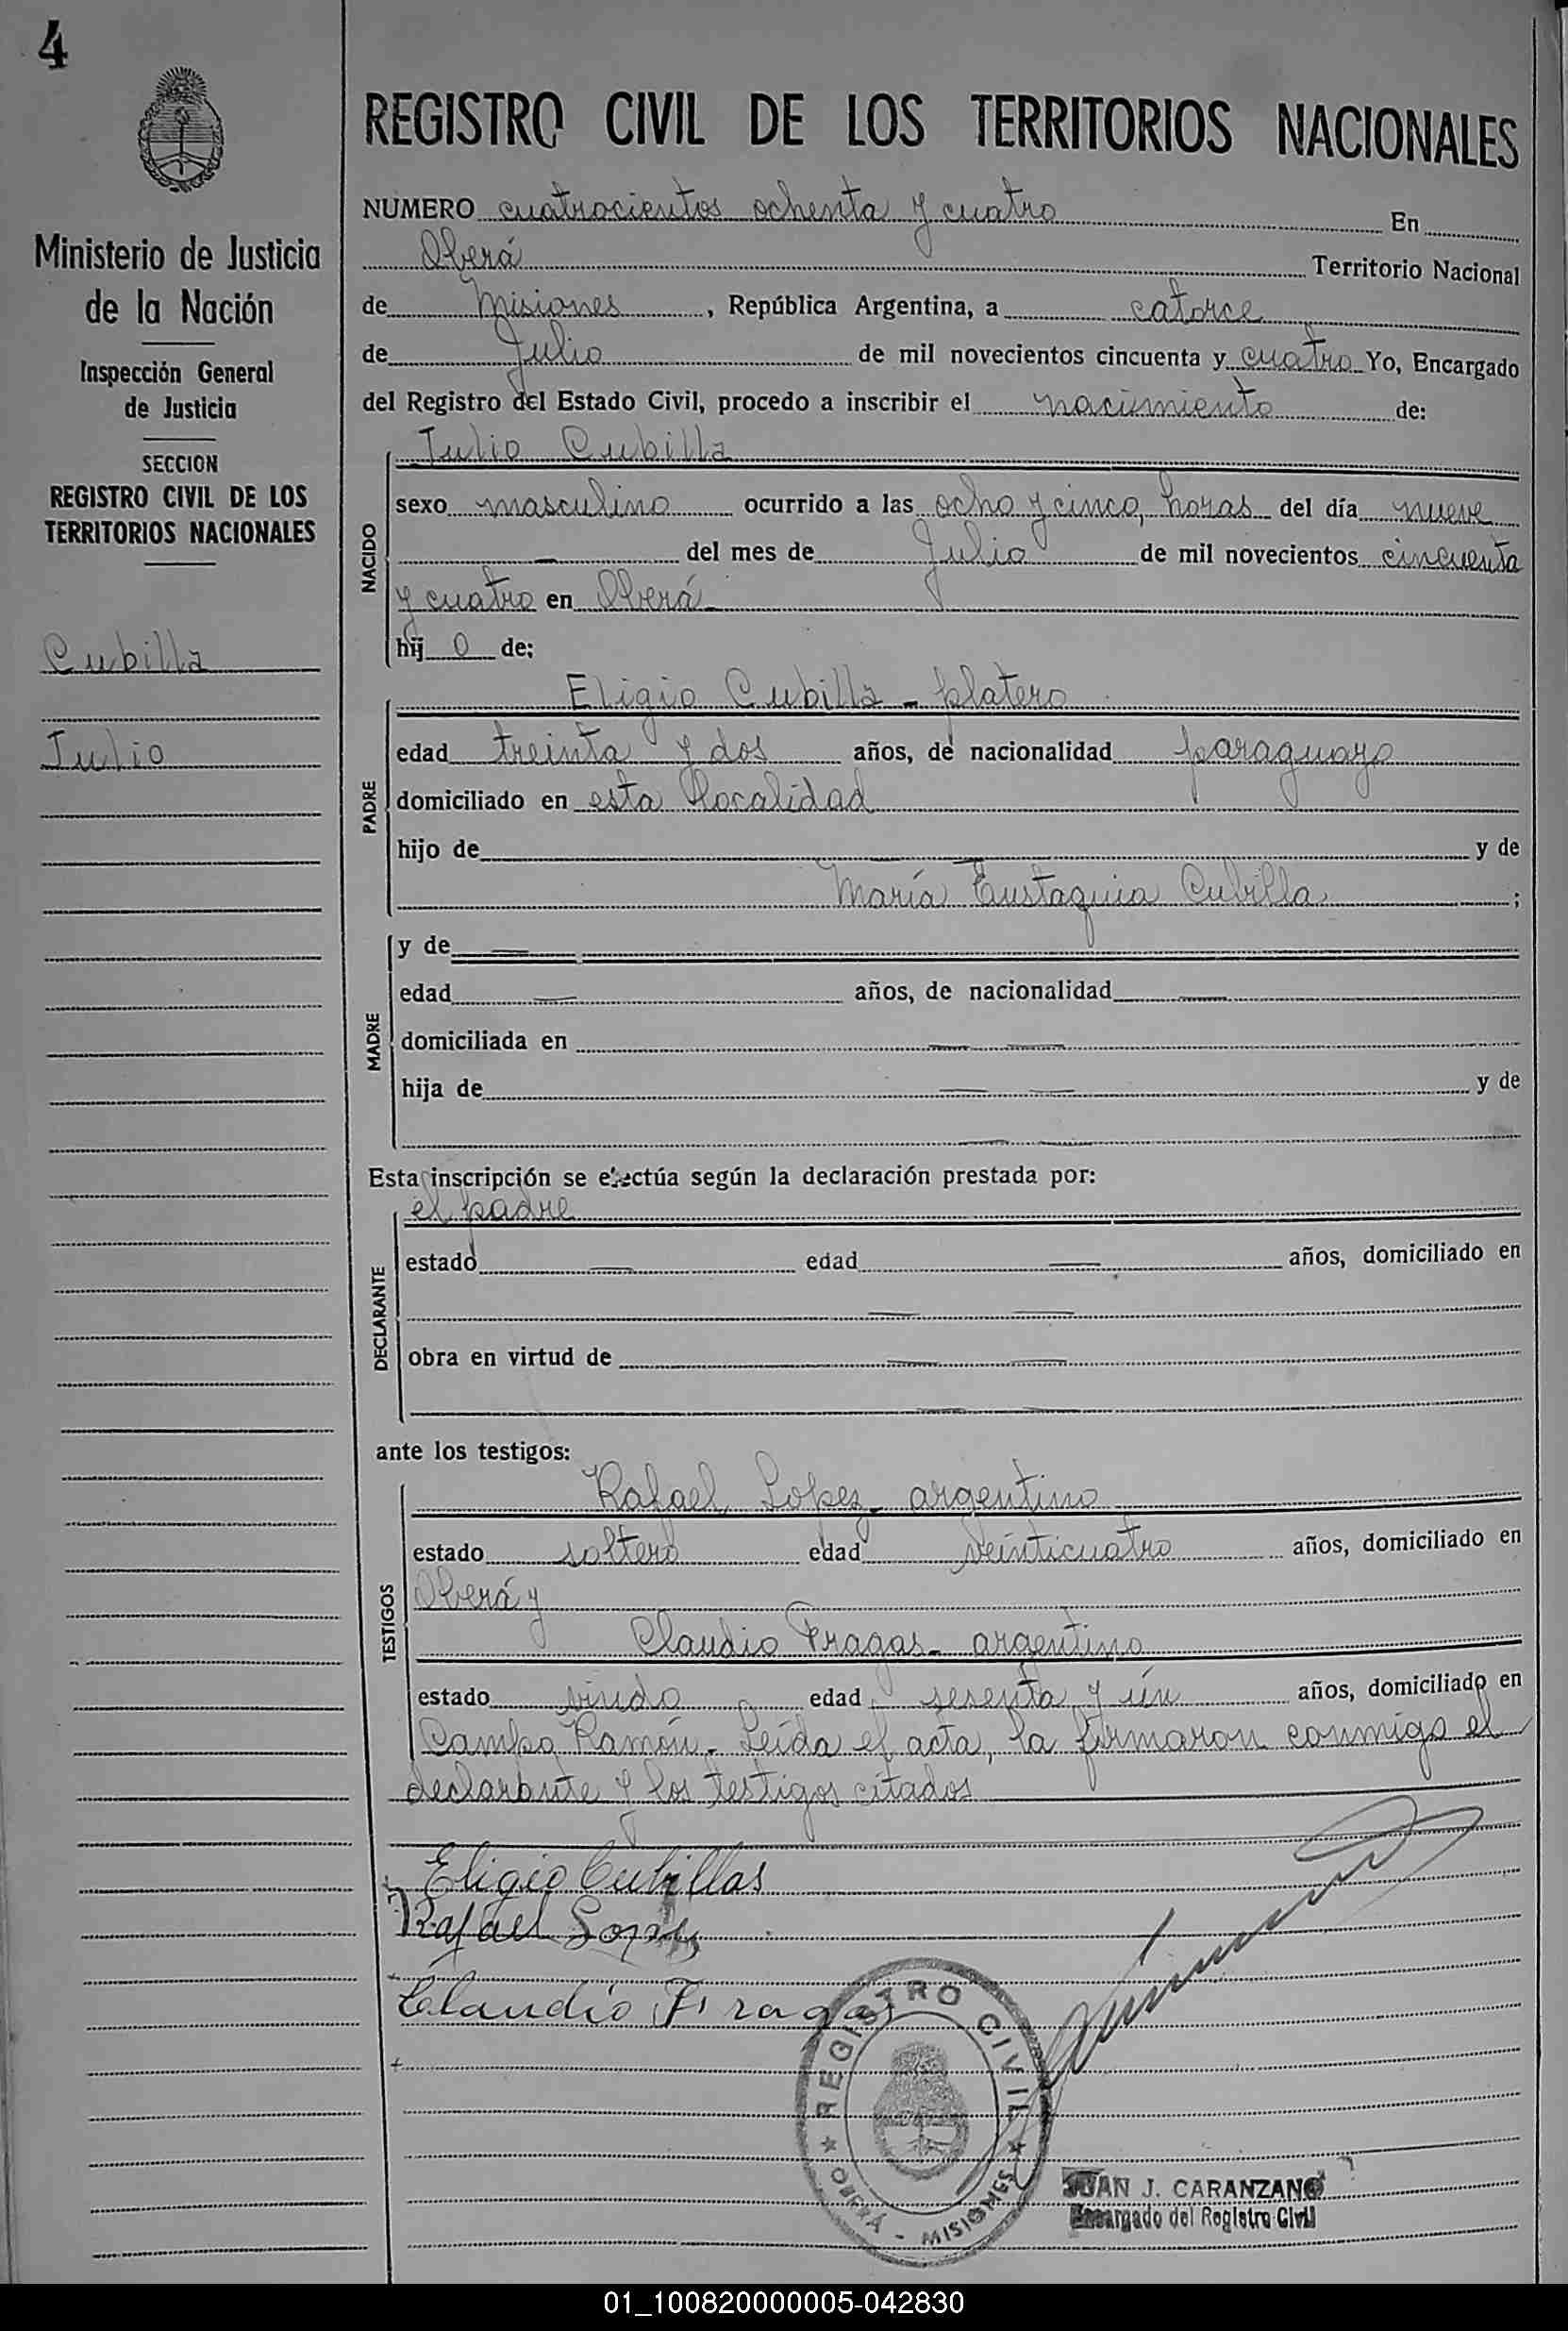 4
REGISTRO CIVIL DE LOS TERRITORIOS NACIONALES
Ministerio de Justicia
de la Nación
Inspección General
de Justicia
SECCION
REGISTRO CIVIL DE LOS
TERRITORIOS NACIONALES
Cubilla
Julio
NUMERO cuatrocientos ochenta y cuatro En
Oberá Territorio Nacional
de Misiones, República Argentina, a catorce
de Julio de mil novecientos cincuenta y cuatro Yo, Encargado
del Registro del Estado Civil, procedo a inscribir el nacimiento de:
Julio Cubilla
NACIDO
sexo masculino ocurrido a las ocho y cinco, horas del día nueve
— del mes de Julio de mil novecientos cincuenta
y cuatro en Oberá
hij o de:
Eligio Cubilla - platero
PADRE
edad treinta y dos años, de nacionalidad paraguayo
domiciliado en esta localidad
hijo de — — y de
María Eustaquia Cubilla ;
MADRE
y de —
edad — años, de nacionalidad —
domiciliada en — —
hija de — — y de
— —
Esta inscripción se efectúa según la declaración prestada por:
el padre
DECLARANTE
estado — edad — años, domiciliado en
— —
obra en virtud de — —
— —
ante los testigos:
Rafael Lopez - argentino
TESTIGOS
estado soltero edad veinticuatro años, domiciliado en
Oberá y
Claudio Fragas - argentino
estado viudo edad sesenta y ún años, domiciliado en
Campo Ramón. Leída el acta, la firmaron conmigo el
declarante y los testigos citados
Eligio Cubillas
Rafael Lopez
Claudio Fragas
REGISTRO CIVIL
OBERÁ - MISIONES
JUAN J. CARANZANO
Encargado del Registro Civil
01_100820000005-042830